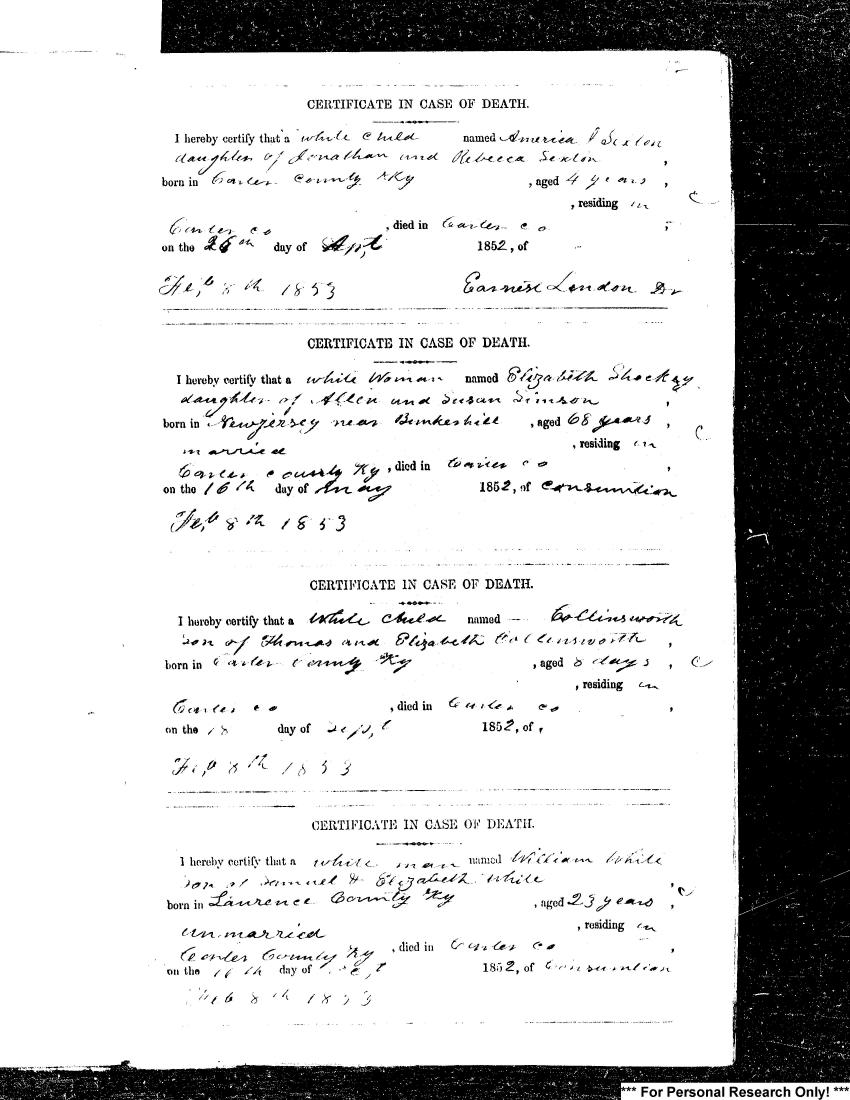 CERTIFICATE IN CASE OF DEATH.
I hereby certify that a white child named America Sexton
daughter of Jonathan and Rebecca Sexton ,
born in Carter County Ky , aged 4 years ,
, residing in
Carter co , died in Carter co ,
on the day of Apt 1852, of
Feb 8th 1853 Earnest London Dr
CERTIFICATE IN CASE OF DEATH.
I hereby certify that a white Woman named Elizabeth Shockey
daughter of Allen and Susan Simson ,
born in Newjersey near Bunkershill , aged 68 years ,
, residing in
married
Carter county Ky , died in Carter co ,
on the 16th day of may 1852, of consumtion
Feb 8th 1853
CERTIFICATE IN CASE OF DEATH.
I hereby certify that a White child named – Collinsworth
son of Thomas and Elizabeth Collinsworth ,
born in Carter County Ky , aged 8 days ,
, residing in
Carter co , died in Carter co ,
on the 18 day of Sept 1852, of
Feb 8th 1853
CERTIFICATE IN CASE OF DEATH.
I hereby certify that a white man named William White
son of Samuel & Elizabeth White ,
born in Laurence County Ky , aged 23 years ,
, residing in
unmarried
Carter County Ky , died in Carter co ,
on the 16th day of 1852, of Consumtion
Feb 8th 1853
*** For Personal Research Only! ***